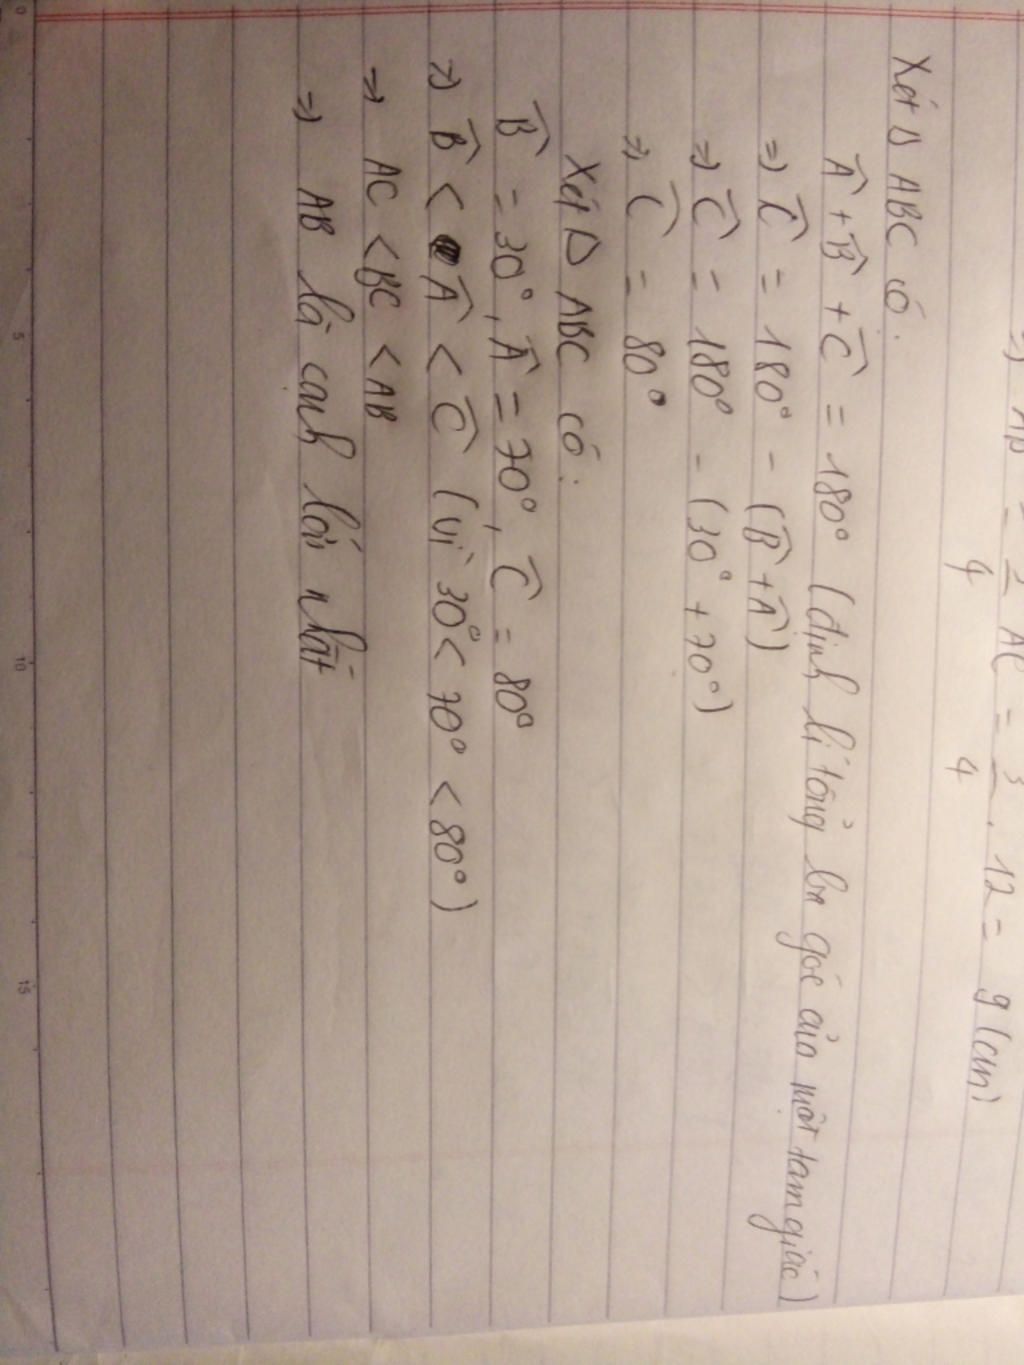 => AB = 3/4 AC = 3/4 . 12 = 9 (cm)
Xét Δ ABC có.
Â + B̂ + Ĉ = 180° (định lí tổng ba góc của một tam giác)
=> Ĉ = 180° - (B̂ + Â)
=> Ĉ = 180° - (30° + 70°)
=> Ĉ = 80°
Xét Δ ABC có:
B̂ = 30°, Â = 70°, Ĉ = 80°
=> B̂ < Â < Ĉ (vì 30° < 70° < 80°)
=> AC < BC < AB
=> AB là cạnh lớn nhất
0 5 10 15